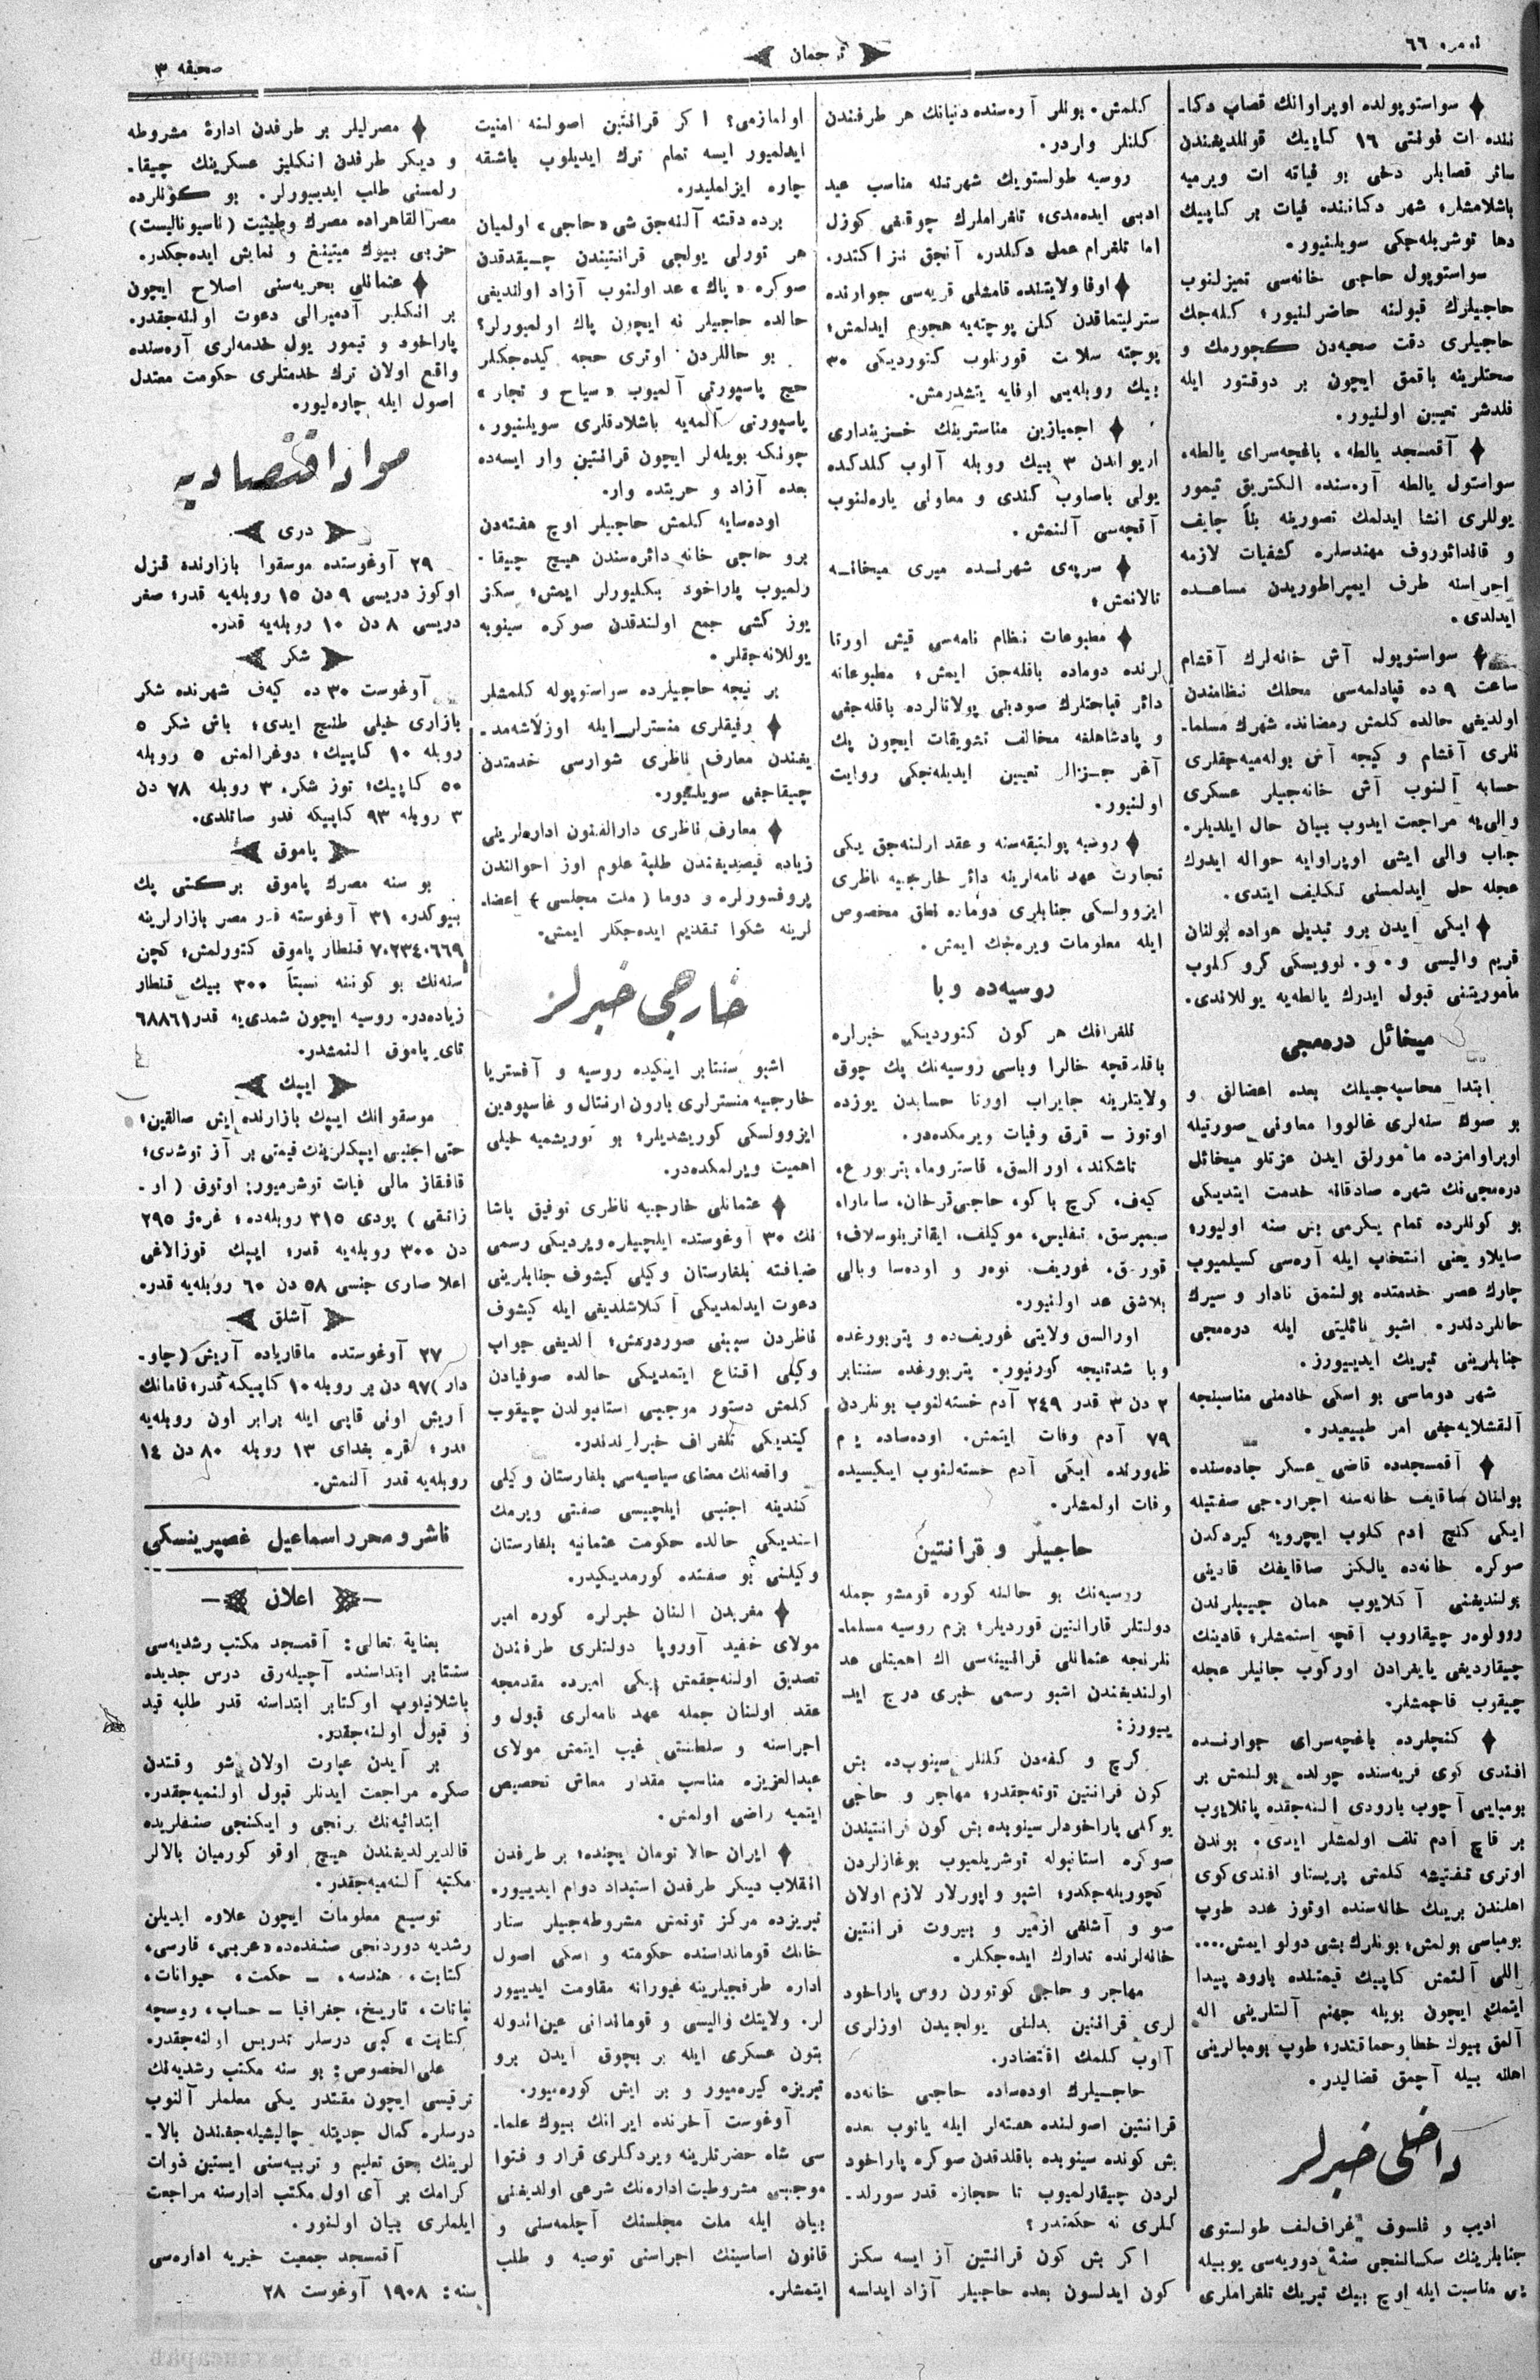 نومرو ٦٦
ترجمان
صحيفه ٣
سواستوپولده اوپراوانك قصاب دكا-
ننده ات فونتى ١٦ كاپيك قوللديغندن
سائر قصابلر دخى بو فياته ات ويرميه
باشلامشلر؛ شهر دكاننده فيات بر كاپيك
دها توشريله‌جكى سويلنيور.
سواستوپول حاجى خانه‌سى تميزلنوب
حاجيلرك قبولنه حاضرلنيور؛ كله‌جك
حاجيلرى دقت صحيه‌دن كچورمك و
صحتلرينه باقمق ايچون بر دوقتور ايله
فلدشر تعيين اولنيور.
آقمسجد يالطه، باغچه‌سراى يالطه،
سواستول يالطه آره‌سنده الكتريق تيمور
يوللرى انشا ايدلمك تصورينه بناً چايف
و قانداثوروف مهندسلره كشفيات لازمه
اجراسنه طرف ايمپراطوريدن مساعده
ايدلدى.
سواستوپول آش خانه‌لرك آقشام
ساعت ٩ ده قپادلمه‌سى محلك نظامندن
اولديغى حالده كلمش رمضانده شهرك مسلما-
نلرى آقشام و كيجه آش بوله‌ميه‌جقلرى
حسابه آلنوب آش خانه‌جيلر عسكرى
والى‌يه مراجعت ايدوب بيان حال ايلديلر.
جناب والى ايشى اوپراوايه حواله ايدوك
عجله حل ايدلمسنى تكليف ايتدى.
ايكى آيدن برو تبديل هواده بولنان
قريم واليسى و. و. نوويسكى كرو كلوب
مأموريتنى قبول ايدرك يالطه‌يه يوللاندى.
ميخائل دره‌مجى
ابتدا محاسبه‌جيلك بعده اعضالق و
بو صوك سنه‌لرى غالووا معاونى صورتيله
اوپراوامزده مأمورلق ايدن عزتلو ميخائل
دره‌مجى‌نك شهره صادقانه خدمت ايتديكى
بو كونلرده تمام يكرمى بش سنه اوليور؛
صايلاو يعنى انتخاب ايله آره‌سى كسيلميوب
چارك عصر خدمتده بولنمق نادار و سيرك
حاللردندر. اشبو نائليتى ايله دره‌مجى
جنابلرينى تبريك ايديييورز.
شهر دوماسى بو اسكى خادمنى مناسبنجه
آلقشلايه‌جغى امر طبيعيدر.
آقمسجدده قاضى عسكر جاده‌سنده
بولنان صاقايف خانه‌سنه اجرا‌ره‌جى صفتيله
ايكى كنج ادم كلوب ايچرويه كيردكدن
صوكره خانه‌ده يالكز صاقايفك قادينى
بولنديغنى آكلايوب همان جيبلرندن
روولوور چيقاروب آقچه استمشلر؛ قادينك
چيقارديغى يايغرادن اوركوب جانيلر عجله
چيقوب قاچمشلر.
كنجلرده باغچه‌سراى جوارنده
افندى كوى قريه‌سنده چولده بولنمش بر
بومبايى آچوب بارودى النه‌جقده پاتلايوب
بر قاچ آدم تلف اولمشلر ايدى. بوندن
اوترى تفتيشه كلمش پريستاو افندى كوى
اهلندن برينك خانه‌سنده اوتوز عدد طوپ
بومباسى بولمش؛ بونلرك بشى دولو ايمش....
اللى آلتمش كاپيك قيمتنده بارود پيدا
ايتمك ايچون بويله جهنم آلتلرينى اله
آلمق بيوك خطا وحماقتدر؛ طوپ بومبالرينى
اهلنه بيله آچمق قضاليدر.
داخلى خبرلر
اديب و فلسوف غراف لف طولستوى
جنابلرينك سكساننجى سنۀ دوريه‌سى يوبيله
يى مناسبت ايله اوچ بيك تبريك تلغراملرى
كلمش. بونلر آره‌سنده دنيانك هر طرفندن
كلنلر واردر.
روسيه طولستوينك شهرتنه مناسب عيد
ادبى ايده‌مدى؛ تلغراملرك چوقلغى كوزل
اما تلغرام عمل دكلدر. آنجق نزاكتدر.
اوفا ولايتنده قامشلى قريه‌سى جوارنده
سترليتماقدن كلن پوچته‌يه هجوم ايدلمش؛
پوچته سلامت قورتلوب كتورديكى ٣٠
بيك روبله‌يى اوفايه يتشدرمش.
اچميازين مناسترينك خزينه‌دارى
اريواندن ٣ بيك روبله آلوب كلدكده
يولى باصلوب كندى و معاونى ياره‌لنوب
آقچه‌سى آلنمش.
سريه‌ى شهرنده ميرى ميخانه
تالانمش؛
مطبوعات نظام نامه‌سى قيش اورتا
لرنده دوماده باقله‌جق ايمش؛ مطبوعاته
دائر قباحتلرك صودينى پولاتالرده باقله‌جغى
و پادشاهلغه مخالف تشويقات ايچون پك
آغر جزالر تعيين ايديله‌نجكى روايت
اولنيور.
روسيه پوليتقه‌سنه و عقد اولنه‌جق يكى
تجارت عهد نامه‌لرينه دائر خارجيه ناظرى
ايزوولسكى جنابلرى دوماده نطق مخصوص
ايله معلومات ويره‌جك ايمش.
روسيه‌ده وبا
تلغرافك هر كون كتورديكى خبرلره
باقلدقچه خالرا وباسى روسيه‌نك پك چوق
ولايتلرينه جايراب اورتا حسابدن يوزده
اوتوز – قرق وفيات ويرمكده‌در.
تاشكند، اورالسق، قاستروما، پتربورغ،
كيه‌ف، كرچ باكو، حاجى‌ترخان، سامارا،
سيمبرسق، تفليس، موكيلف، ايقاترينوسلاف،
قورسق، غوريف، نوور و اوده‌سا وبالى
بلاشق عد اولنيور.
اورالسق ولايتى غوريف‌ده و پتربورغده
وبا شدتليجه كورنيور. پتربورغده سنتابر
٢ دن ٣ قدر ٢٤٩ آدم خسته‌لنوب بونلردن
٧٩ آدم وفات ايتمش. اوده‌ساده يم
ظهورنده ايكى آدم خسته‌لنوب ايكيسيده
وفات اولمشلر.
حاجيلر و قرانتين
روسيه‌نك بو حالنه كوره قومشو جمله
دولتلر قارانتين قورديلر؛ بزم روسيه مسلما-
نلرنجه عثمانلى قرانتينه‌سى اك اهميتلى عد
اولنديغندن اشبو رسمى خبرى درج ايد-
ييورز:
كرچ و كفه‌دن كلنلر سينوپ‌ده بش
كون قرانتين توته‌جقدر؛ مهاجر و حاجى
يوكلى پاراخودلر سينوپده بش كون قرانتيندن
صوكره استانبوله توشريلميوب بوغازلردن
كچوريله‌جكدر؛ اشبو واپورلار لازم اولان
صو و آشلغى ازمير و بيروت قرانتين
خانه‌لرنده تدارك ايده‌جكلر.
مهاجر و حاجى كوتورن روس پاراخود
لرى قرانتين بدلنى يولجيدن اوزلرى
آلوب كلمك اقتضادر.
حاجيلرك اوده‌ساده حاجى خانه‌ده
قرانتين اصولنده هفته‌لر ايله ياتوب بعده
بش كونده سينوپده باقلدقدن صوكره پاراخود
لردن چيقارلميوب تا حجازه قدر سورلد-
كلرى نه حكمتدر؟
اكر بش كون قرانتين آز ايسه سكز
كون ايدلسون بعده حاجيلر آزاد ايداسه
اولمازمى؟ اكر قرانتين اصولنه امنيت
ايدلميور ايسه تمام ترك ايديلوب باشقه
چاره ايزلمليدر.
برده دقته آلنه‌جق شى «حاجى» اولميان
هر تورلى يولجى قرانتيندن چيقدقدن
صوكره «پاك» عد اولنوب آزاد اولنديغى
حالده حاجيلر نه ايچون پاك اولميورلر؟
بو حاللردن اوترى حجه كيده‌جكلر
حج پاسپورتى آلميوب «سياح و تجار»
پاسپورتى آلمه‌يه باشلادقلرى سويلنيور،
چونكه بويله‌لر ايچون قرانتين وار ايسه‌ده
بعده آزاد و حريتده وار.
اوده‌سايه كلمش حاجيلر اوچ هفته‌دن
برو حاجى خانه دائره‌سندن هيچ چيقا-
رلميوب پاراخود بكليورلر ايمش؛ سكز
يوز كشى جمع اولندقدن صوكره سينوبه
يوللانه‌جقلر.
بر نيجه حاجيلرده سواستوپوله كلمشلر
رفيقلرى منسترلر ايله اوزلاشه‌مد-
يغندن معارف ناظرى شوارسى خدمتدن
چيقاجغى سويلنيور.
معارف ناظرى دارالفنون اداره‌لرينى
زياده قيصديغندن طلبۀ علوم اوز احوالندن
پروفسورلره و دوما (ملت مجلسى) اعضا-
لرينه شكوا تقديم ايده‌جكلر ايمش.
خارجى خبرلر
اشبو سنتابر ايكيده روسيه و آفستريا
خارجيه منسترلرى بارون ارنتال و غاسپودين
ايزوولسكى كوريشديلر؛ بو كوريشميه خيلى
اهميت ويرلمكده‌در.
عثمانلى خارجيه ناظرى توفيق پاشا
نك ٣٠ آوغوستده ايلچيلره ويرديكى رسمى
ضيافته بلغارستان وكيلى كيشوف جنابلرينى
دعوت ايدلمديكى آكلاشلديغى ايله كيشوف
ناظردن سببنى صوردرمش؛ الديغى جواب
وكيلى اقناع ايتمديكى حالده صوفيادن
كلمش دستور موجبى استانبولدن چيقوب
كيتديكى تلغراف خبرلرندندر.
واقعه‌نك معناى سياسيه‌سى بلغارستان وكيلى
كندينه اجنبى ايلچيسى صفتى ويرمك
استديكى حالده حكومت عثمانيه بلغارستان
وكيلنى بو صفتده كورمديكيدر.
مغربدن النان خبرلره كوره امير
مولاى حفيد آوروپا دولتلرى طرفندن
تصديق اولنه‌جقمش؛ يكى اميرده مقدمجه
عقد اولنان جمله عهد نامه‌لرى قبول و
اجراسنه و سلطنتى غيب ايتمش مولاى
عبدالعزيزه مناسب مقدار معاش تخصيص
ايتميه راضى اولمش.
ايران حالا تومان يچنده؛ بر طرفدن
انقلاب ديكر طرفدن استبداد دوام ايدييور.
تبريزده مركز توتمش مشروطه‌جيلر ستار
خانك قومانداسنده حكومته و اسكى اصول
اداره طرفجيلرينه غيورانه مقاومت ايدييور
لر. ولايتك واليسى و قوماندانى عين‌الدوله
بتون عسكرى ايله بر بچوق آيدن برو
تبريزه كيره‌ميور و بر ايش كوره‌ميور.
آوغوست آخرنده ايرانك بيوك علما-
سى شاه حضرتلرينه ويردكلرى قرار و فتوا
موجبى مشروطيت اداره‌نك شرعى اولديغنى
بيان ايله ملت مجلسنك آچلمه‌سنى و
قانون اساسينك اجراسنى توصيه و طلب
ايتمشلر.
مصرليلر بر طرفدن ادارۀ مشروطه
و ديكر طرفدن انكليز عسكرينك چيقا-
رلمسنى طلب ايدييورلر. بو كونلرده
مصرالقاهراده مصرك وطنيت (ناسيوناليست)
حزبى بيوك ميتينغ و نمايش ايده‌جكدر.
عثمانلى بحريه‌سنى اصلاح ايچون
بر انكليز آدميرالى دعوت اولنه‌جقدر.
پاراخود و تيمور يول خدمه‌لرى آره‌سنده
واقع اولان ترك خدمتلرى حكومت معتدل
اصول ايله چاره‌ليور.
مواد اقتصاديه
درى
٢٩ آوغوستده موسقوا بازارنده قزل
اوكوز دريسى ٩ دن ١٥ روبله‌يه قدر؛ صغر
دريسى ٨ دن ١٠ روبله‌يه قدر.
شكر
آوغوست ٣٠ ده كيه‌ف شهرنده شكر
بازارى خيلى طنچ ايدى؛ باش شكر ٥
روبله ١٠ كاپيك؛ دوغرالمش ٥ روبله
٥٠ كاپيك؛ توز شكر، ٣ روبله ٧٨ دن
٣ روبله ٩٣ كاپيكه قدر صاتلدى.
پاموق
بو سنه مصرك پاموق بركتى پك
بيوكدر، ٣١ آوغوسته قدر مصر بازارلرينه
٧٠٢٣٤٠٦٦٩ قنطار پاموق كتورلمش؛ كچن
سنه‌نك بو كوننه نسبتاً ٣٠٠ بيك قنطار
زياده‌در. روسيه ايچون شمدى‌يه قدر ٦٨٨٦١
تاى پاموق النمشدر.
ايپك
موسقوانك ايپك بازارنده ايش صالقين؛
حتى اجنبى ايپكلرينك قيمتى بر آز توشدى؛
قافقاز مالى فيات توشرميور؛ اوتوق (او-
زانقى) پودى ٣١٥ روبله‌ده؛ غره‌ژ ٢٩٥
دن ٣٠٠ روبله‌يه قدر؛ ايپك قوزالاغى
اعلا صارى جنسى ٥٨ دن ٦٠ روبله‌يه قدر.
آشلق
٢٧ آوغوستده ماقارياده آريش (چاو-
دار) ٩٧ دن بر روبله ١٠ كاپيكه قدر؛ قامانك
آريش اونى قاپى ايله برابر اون روبله‌يه
قدر؛ قره بغداى ١٣ روبله ٨٠ دن ١٤
روبله‌يه قدر آلنمش.
ناشر و محرر اسماعيل غصپرينسكى
اعلان
بعناية تعالى؛ آقمسجد مكتب رشديه‌سى
سنتابر ابتداسنده آچيله‌رق درس جديده
باشلانيلوب اوكتابر ابتداسنه قدر طلبه قيد
و قبول اولنه‌جقدر.
بر آيدن عبارت اولان شو وقتدن
صكره مراجعت ايدنلر قبول اولنميه‌جقدر.
ابتدائيه‌نك برنجى و ايكنجى صنفلريده
قالديرلديغندن هيچ اوقو كورميان بالالر
مكتبه آلنه‌ميه‌جقدر.
توسيع معلومات ايچون علاوه ايديلن
رشديه دوردنجى صنفده‌ده «عربى، فارسى،
كتابت، هندسه، – حكمت، حيوانات،
نباتات، تاريخ، جغرافيا – حساب، روسچه
كتابت» كبى درسلر تدريس اولنه‌جقدر.
على‌الخصوص؛ بو سنه مكتب رشديه‌نك
ترقيسى ايچون مقتدر يكى معلملر آلنوب
درسلره كمال جديتله چاليشيله‌جغندن بالا-
لرينك بحق تعليم و تربيه‌سنى ايستين ذوات
كرامك بر آى اول مكتب ادارسنه مراجعت
ايلملرى بيان اولنور.
آقمسجد جمعيت خيريه اداره‌سى
سنه: ١٩٠٨ آوغوست ٢٨